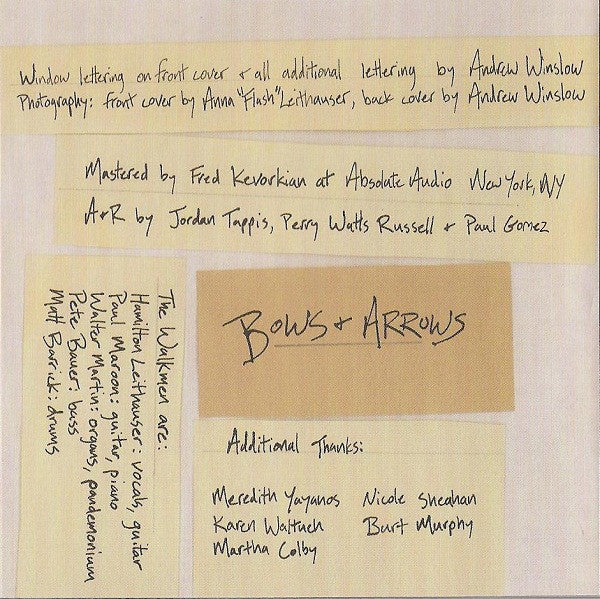 Window lettering on front cover & all additional lettering by Andrew Winslow
Photography: front cover by Anna "Flash" Leithauser, back cover by Andrew Winslow
Mastered by Fred Kevorkian at Absolute Audio New York, NY
A&R by Jordan Tappis, Perry Watts Russell & Paul Gomez
The Walkmen are:
Hamilton Leithauser: vocals, guitar
Paul Maroon: guitar, piano
Walter Martin: organs, pandemonium
Pete Bauer: bass
Matt Barrick: drums
BOWS & ARROWS
Additional Thanks:
Meredith Yayanos Nicole Sheahan
Karen Waltuch Burt Murphy
Martha Colby